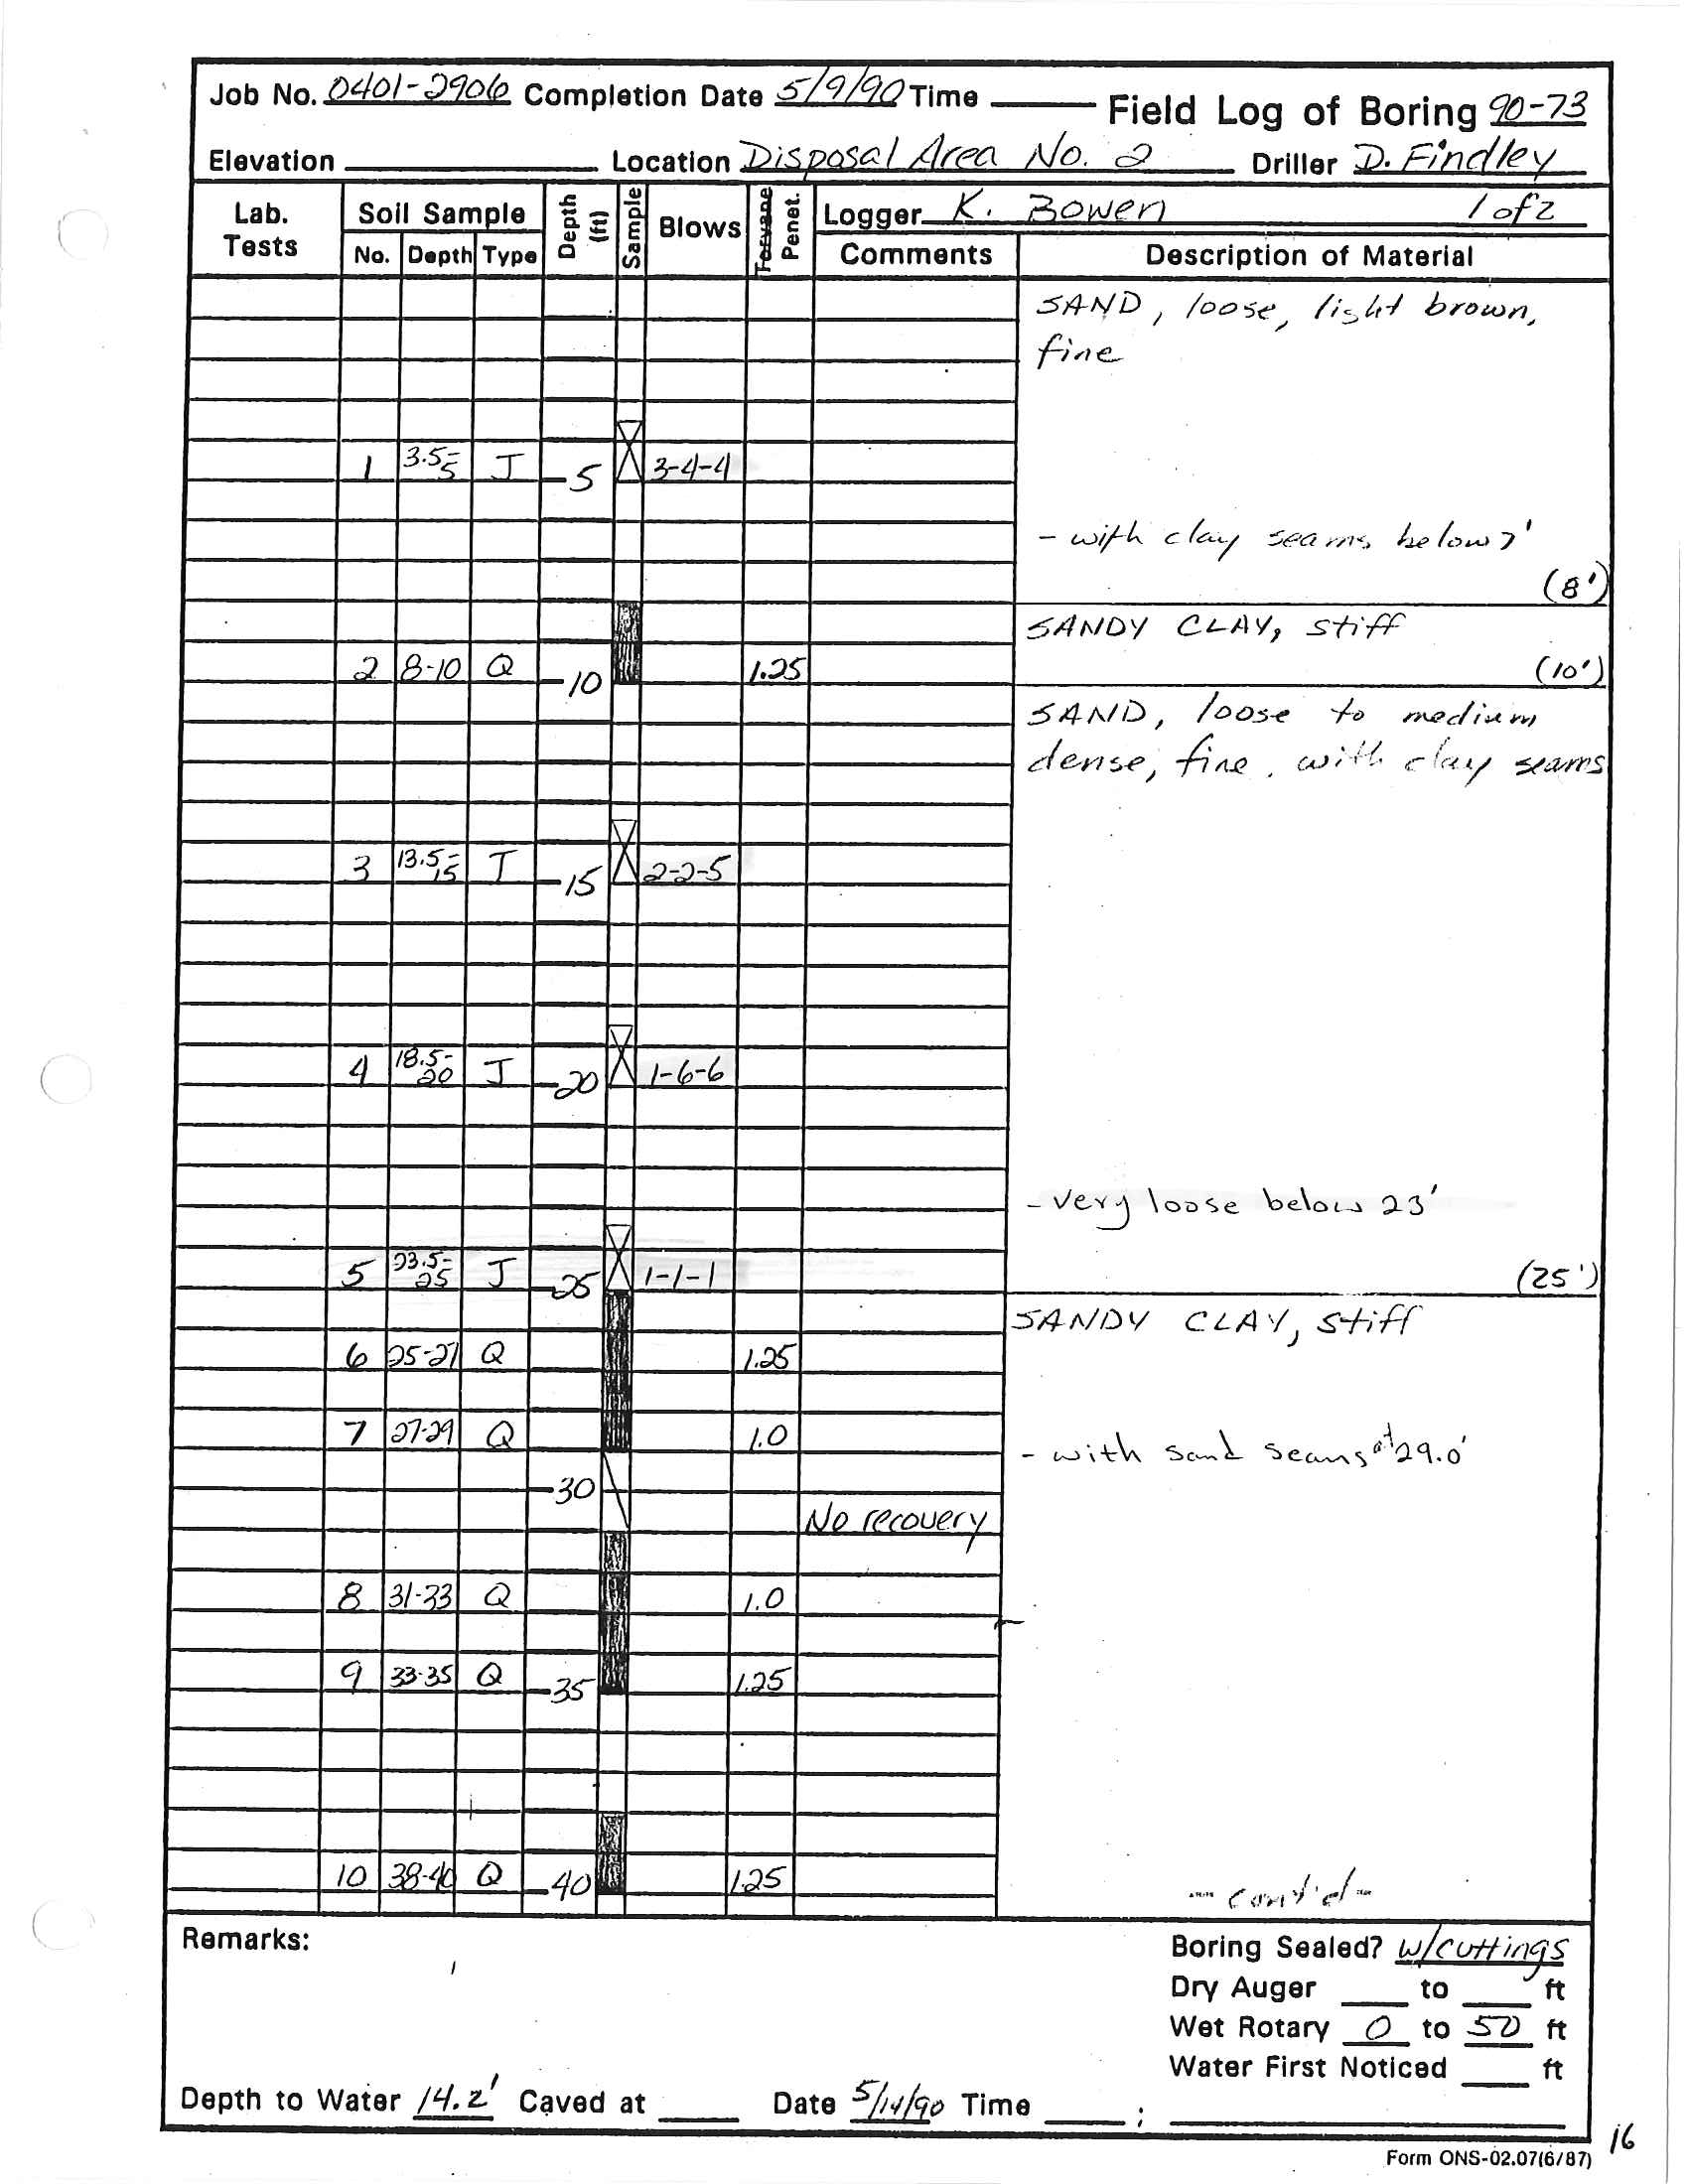 Job No. 0401-2906 Completion Date 5/9/90 Time ____ Field Log of Boring 90-73
Elevation ____ Location Disposal Area No. 2 Driller D. Findley
Lab. Tests Soil Sample Depth (ft) Sample Blows Torvane Penet. Logger K. Bowen 1 of 2
No. Depth Type Comments Description of Material
SAND, loose, light brown,
fine
1 3.5-5 J 5 3-4-4
- with clay seams below 7'
(8')
SANDY CLAY, stiff
2 8-10 Q 10 1.25 (10')
SAND, loose to medium
dense, fine, with clay seams
3 13.5-15 J 15 2-2-5
4 18.5-20 J 20 1-6-6
- very loose below 23'
5 23.5-25 J 25 1-1-1 (25')
SANDY CLAY, stiff
6 25-27 Q 1.25
7 27-29 Q 1.0 - with sand seams at 29.0'
30
No recovery
8 31-33 Q 1.0
9 33-35 Q 35 1.25
10 38-40 Q 40 1.25 - cont'd -
Remarks: Boring Sealed? w/cuttings
Dry Auger ____ to ____ ft
Wet Rotary 0 to 50 ft
Water First Noticed ____ ft
Depth to Water 14.2' Caved at ____ Date 5/14/90 Time ____ ; ____
16
Form ONS-02.07(6/87)